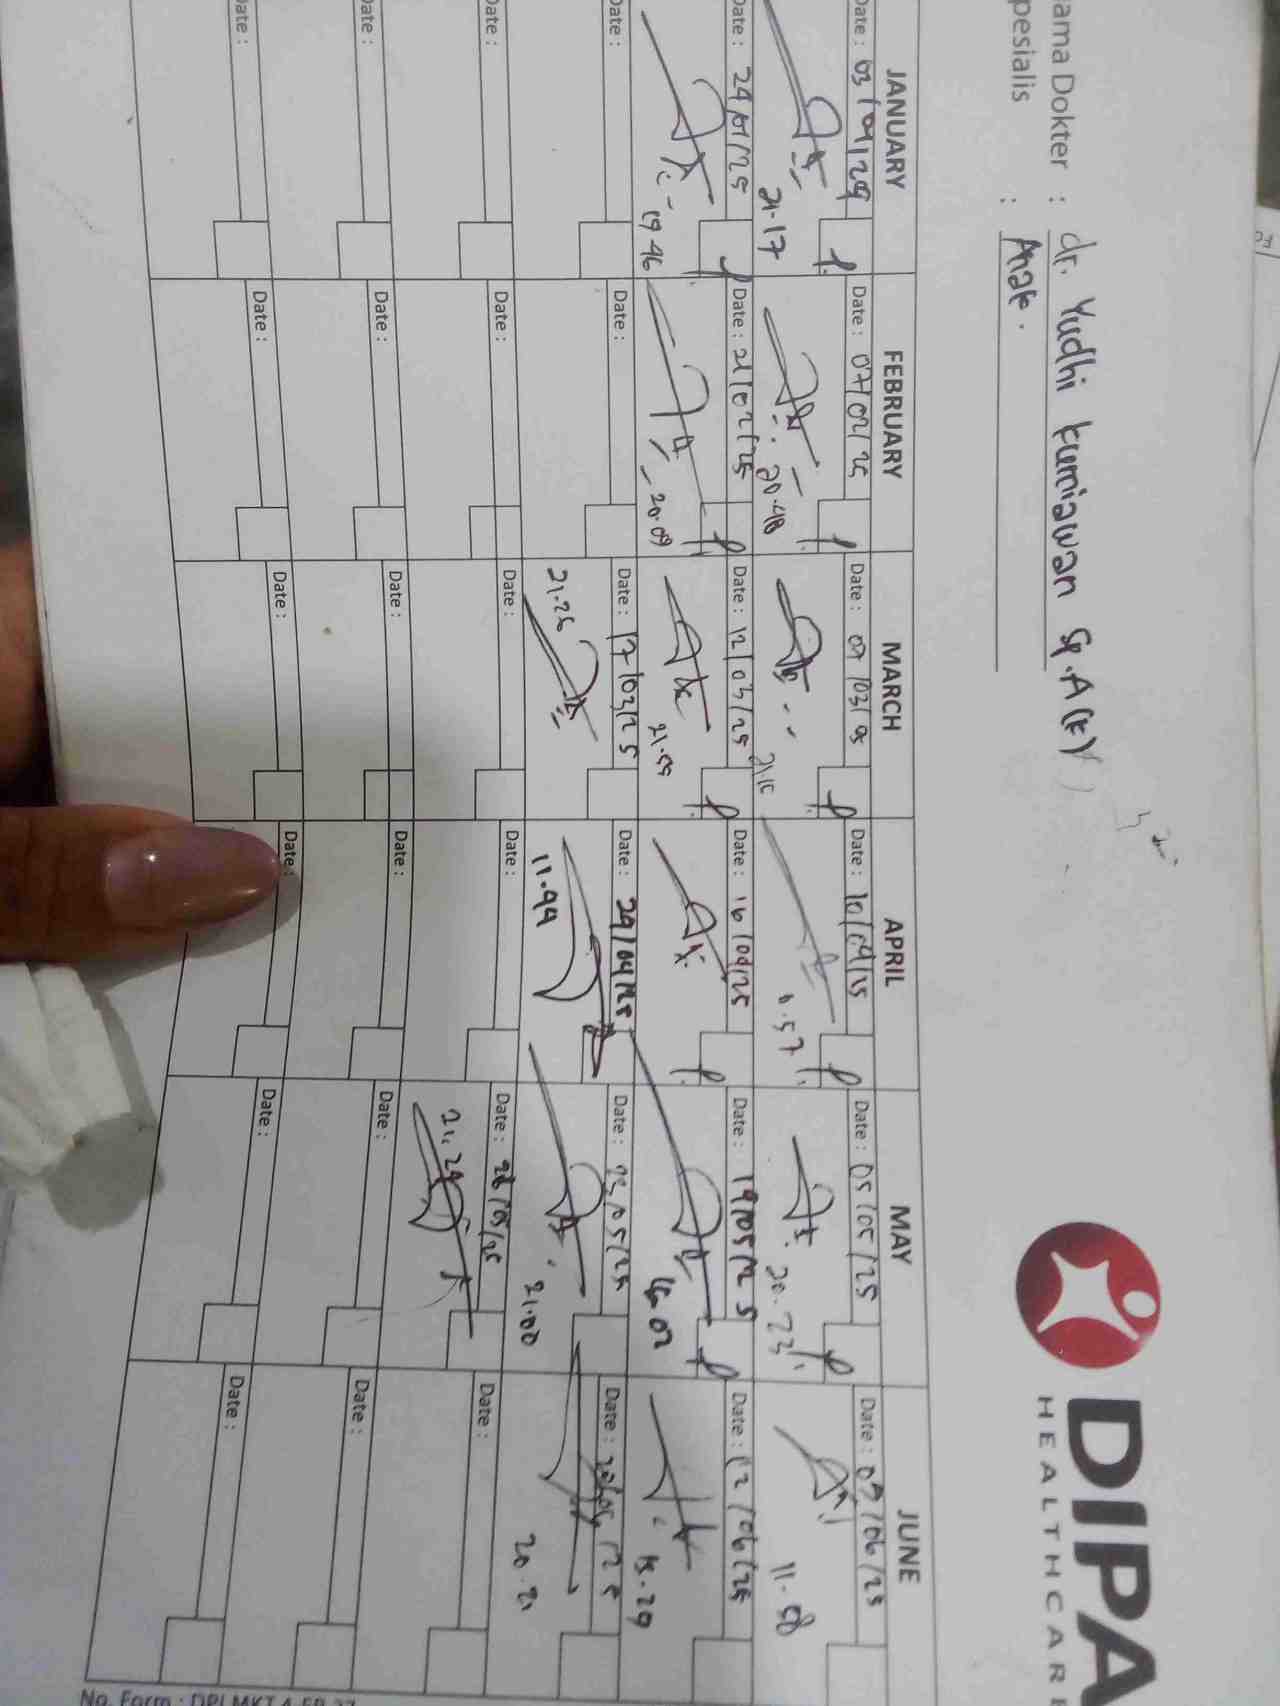 DIPA
HEALTHCARE
ama Dokter : dr. Yudhi kurniawan Sp.A(K)
pesialis : Anak.
JANUARY FEBRUARY MARCH APRIL MAY JUNE
Date: 07/02/25 Date: Date: 10/04/25 Date: 05/05/25 Date:
21.17 20.48 21.15 20.23 11.58
Date: 24/01/25 Date: 21/02/25 Date: 12/03/25 Date: 16/04/25 Date: 19/05/25 Date: 12/06/25
19.46 20.09 21.59
Date: Date: Date: 17/03/25 Date: 29/04/25 Date: 23/05/25 Date:
21.25 11.44 21.00 20.21
Date: Date: Date: Date: Date: 26/05/25 Date:
21.24
Date: Date: Date: Date: Date: Date:
Date: Date: Date: Date: Date: Date:
No. Form : DPI.MKT